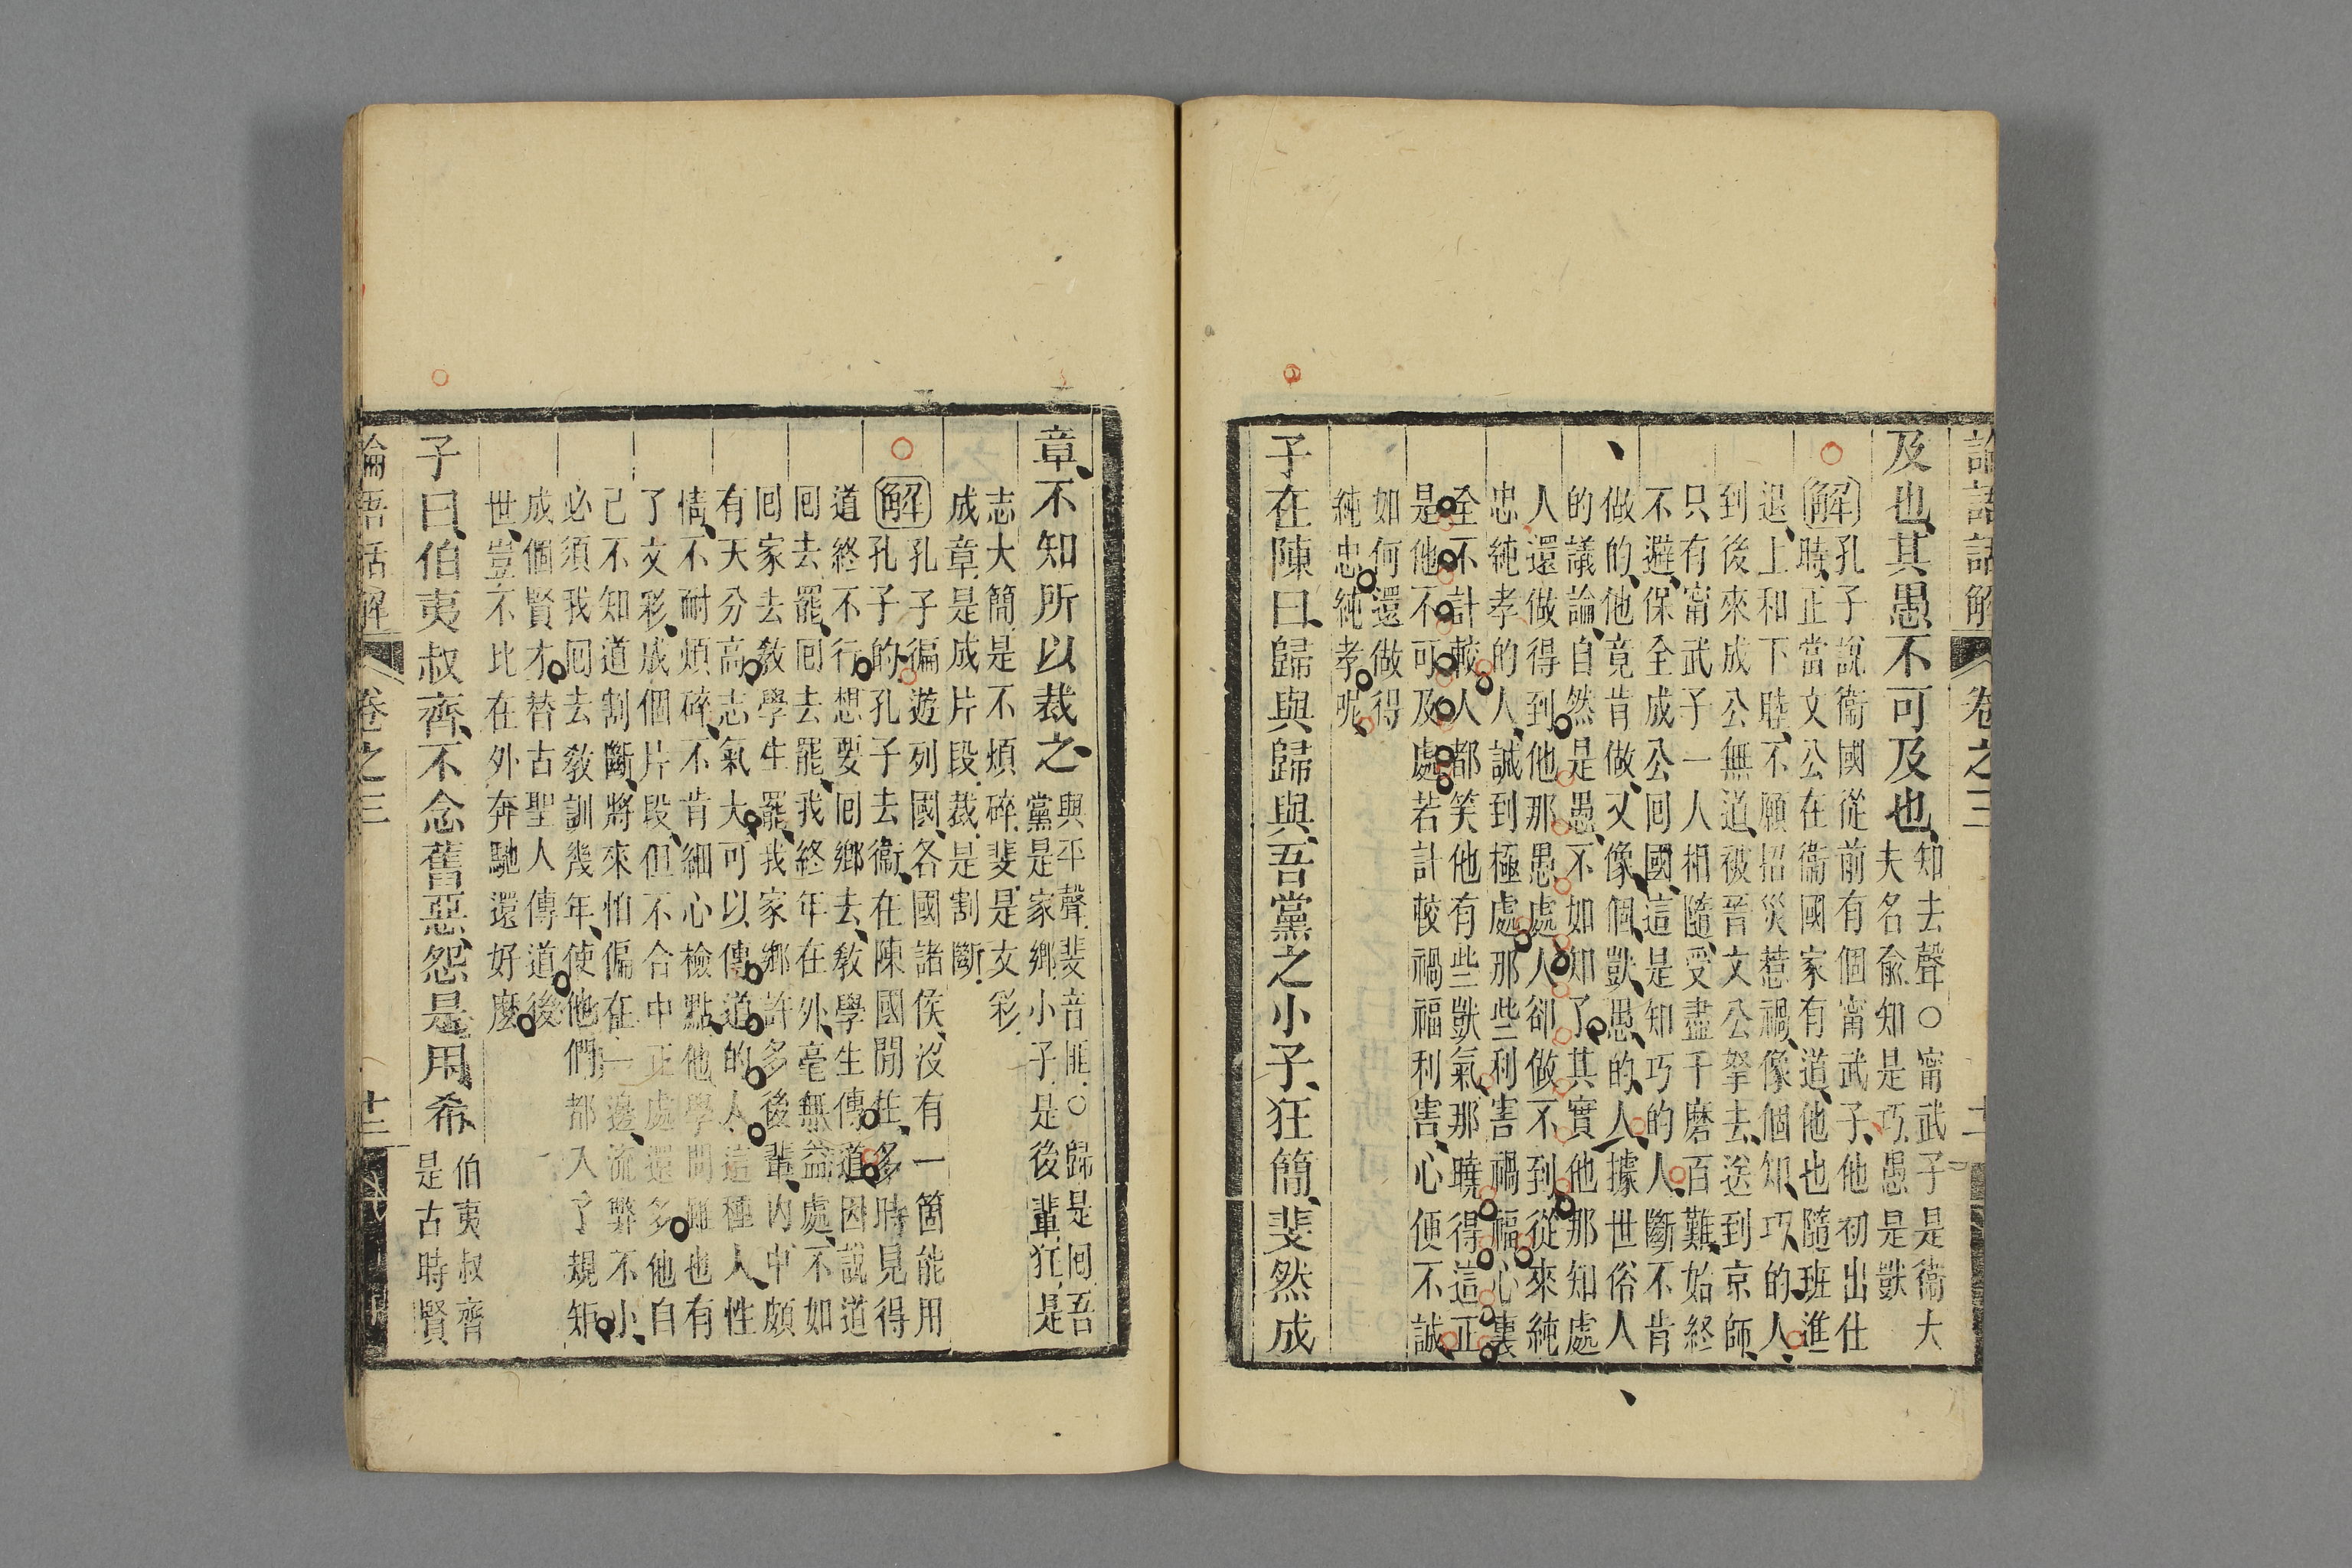 論語話解　卷之三
及也、其愚不可及也、
知去聲○甯武子是衞大
夫名兪知是巧愚是獃
解
孔子說衞國從前有個甯武子、他初出仕
時、正當文公在衞國家有道、他也隨班進
退、上和下睦、不願招災惹禍、像個知巧的人、
到後來成公無道、被晉文公拏去、送到京師、
只有甯武子一人相隨、受盡千磨百難、始終
不避、保全成公囘國、這是知巧的人、斷不肯
做的、他竟肯做、又像個獃愚的人、據世俗人
的議論、自然是愚、不如知了、其實他那知處
人還做得到、他那愚處人卻做不到、從來純
忠純孝的人、誠到極處、那些利害禍福、心裏
全不計較、人都笑他有些獃氣、那曉得這正
是他不可及處、若計較禍福利害、心便不誠、
如何還做得
純忠純孝呢
子在陳曰、歸與歸與、吾黨之小子、狂簡、斐然成
章、不知所以裁之、
與平聲.斐音匪.○歸是囘.吾
黨是家鄉.小子是後輩.狂是
志大.簡是不煩碎.斐是文彩.
成章.是成片段.裁.是割斷.
解
孔子徧遊列國、各國諸侯、沒有一箇能用
孔子的、孔子去衞、在陳國閒住、多時見得
道終不行、想要囘鄉去、敎學生傳道、因說道
囘去罷、囘去罷、我終年在外、毫無益處、不如
囘家去敎學生罷、我家鄉許多後輩、內中頗
有天分高志氣大、可以傳道的人、這種人、性
情、不耐煩碎、不肯細心檢點、他學問雖也有
了文彩、成個片段、但不合中正處還多、他自
己不知道割斷、將來怕偏在一邊、流弊不小、
必須我囘去敎訓幾年、使他們都入了規矩
成個賢才、替古聖人傳道後
世、豈不比在外奔馳還好麽
子曰、伯夷叔齊、不念舊惡、怨是用希、
伯夷叔齊
是古時賢
論語話解　卷之三